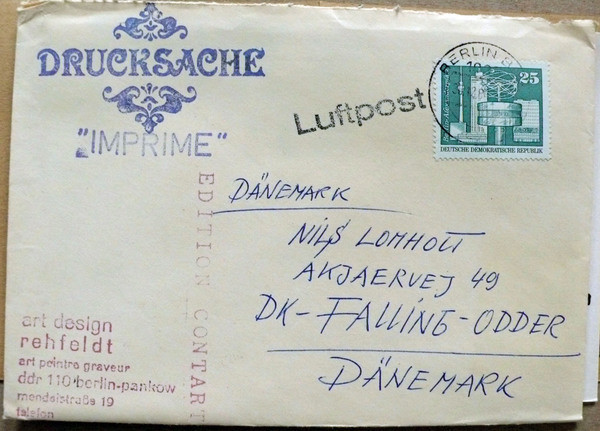 DRUCKSACHE
"IMPRIME"
Luftpost
BERLIN 8
25
DEUTSCHE DEMOKRATISCHE REPUBLIK
EDITION CONTART
DÄNEMARK
NILS LOMHOLT
AKJAERVEJ 49
DK-FALLING-ODDER
DÄNEMARK
art design
rehfeldt
art peintre graveur
ddr 110 berlin-pankow
mendelstraße 19
telefon